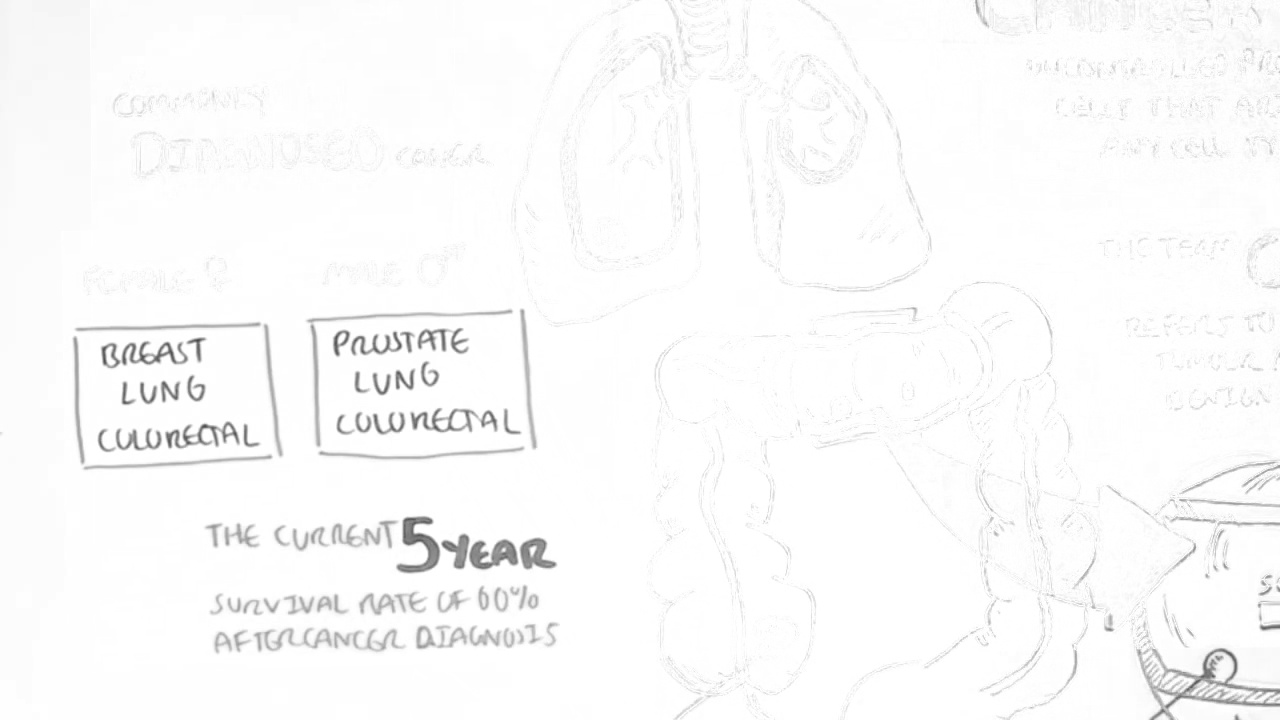 COMMONLY
DIAGNOSED CANCER
FEMALE ♀ MALE ♂
BREAST
LUNG
COLORECTAL
PROSTATE
LUNG
COLORECTAL
THE CURRENT 5 YEAR
SURVIVAL RATE OF 60%
AFTER CANCER DIAGNOSIS
UNCONTROLLED
CELLS THAT
ANY CELL
THE TERM
REFERS TO
TUMOUR
BENIGN